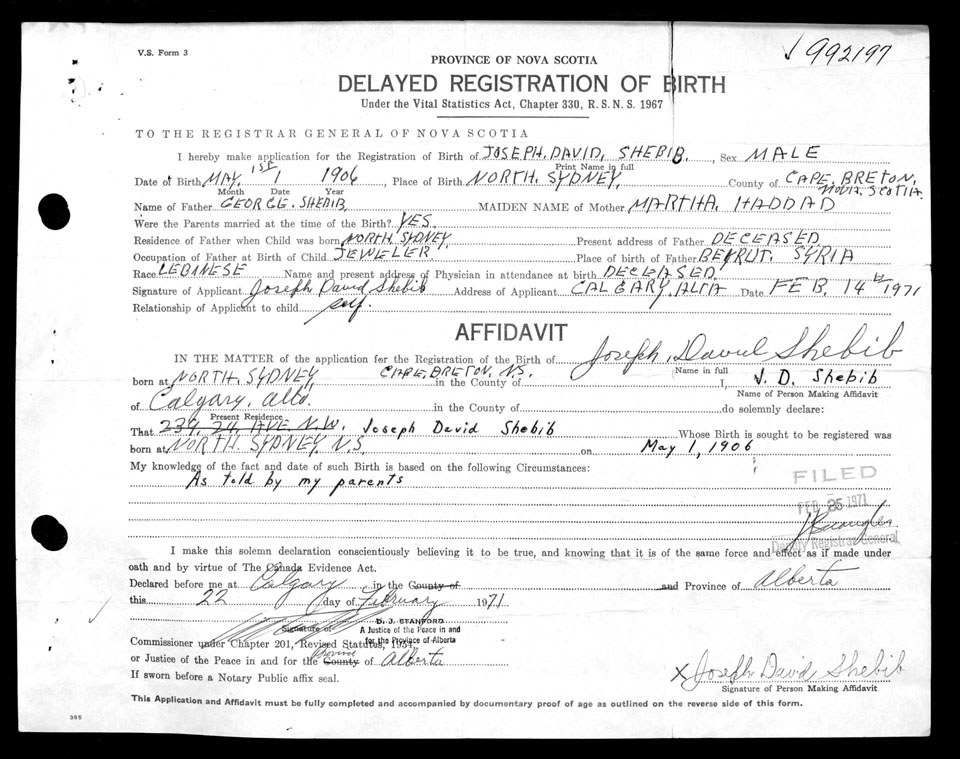 V.S. Form 3
992197
PROVINCE OF NOVA SCOTIA
DELAYED REGISTRATION OF BIRTH
Under the Vital Statistics Act, Chapter 330, R.S.N.S. 1967
TO THE REGISTRAR GENERAL OF NOVA SCOTIA
I hereby make application for the Registration of Birth of JOSEPH. DAVID, SHEBIB. , Sex MALE
Print Name in full
Date of Birth MAY. 1ST 1 1906 , Place of Birth NORTH. SYDNEY, County of CAPE, BRETON, NOVA. SCOTIA.
Month Date Year
Name of Father GEORGE. SHEBIB, MAIDEN NAME of Mother MARTHA. HADDAD
Were the Parents married at the time of the Birth? YES.
Residence of Father when Child was born NORTH. SYDNEY, Present address of Father DECEASED.
Occupation of Father at Birth of Child JEWELER Place of birth of Father BEYRUT. SYRIA
Race LEBINESE Name and present address of Physician in attendance at birth DECEASED.
Signature of Applicant Joseph David Shebib Address of Applicant CALGARY. ALTA Date FEB. 14 1971
Relationship of Applicant to child self.
AFFIDAVIT
IN THE MATTER of the application for the Registration of the Birth of Joseph, David Shebib
Name in full
born at NORTH. SYDNEY, CAPE, BRETON, N.S. in the County of I, J. D. Shebib
Name of Person Making Affidavit
of Calgary, Alta. in the County of do solemnly declare:
Present Residence
That 239, 24, AVE N.W. Joseph David Shebib Whose Birth is sought to be registered was
born at NORTH. SYDNEY, N.S. on May 1, 1906
My knowledge of the fact and date of such Birth is based on the following Circumstances:
As told by my parents
FILED
FEB 25 1971
Deputy Registrar General
I make this solemn declaration conscientiously believing it to be true, and knowing that it is of the same force and effect as if made under
oath and by virtue of The Canada Evidence Act.
Declared before me at Calgary in the County of and Province of Alberta
this 22 day of February 1971
Signature of
D. J. STANFORD
A Justice of the Peace in and
for the Province of Alberta
Commissioner under Chapter 201, Revised Statutes, 1954,
or Justice of the Peace in and for the Province County of Alberta
If sworn before a Notary Public affix seal.
X Joseph David Shebib
Signature of Person Making Affidavit
This Application and Affidavit must be fully completed and accompanied by documentary proof of age as outlined on the reverse side of this form.
385